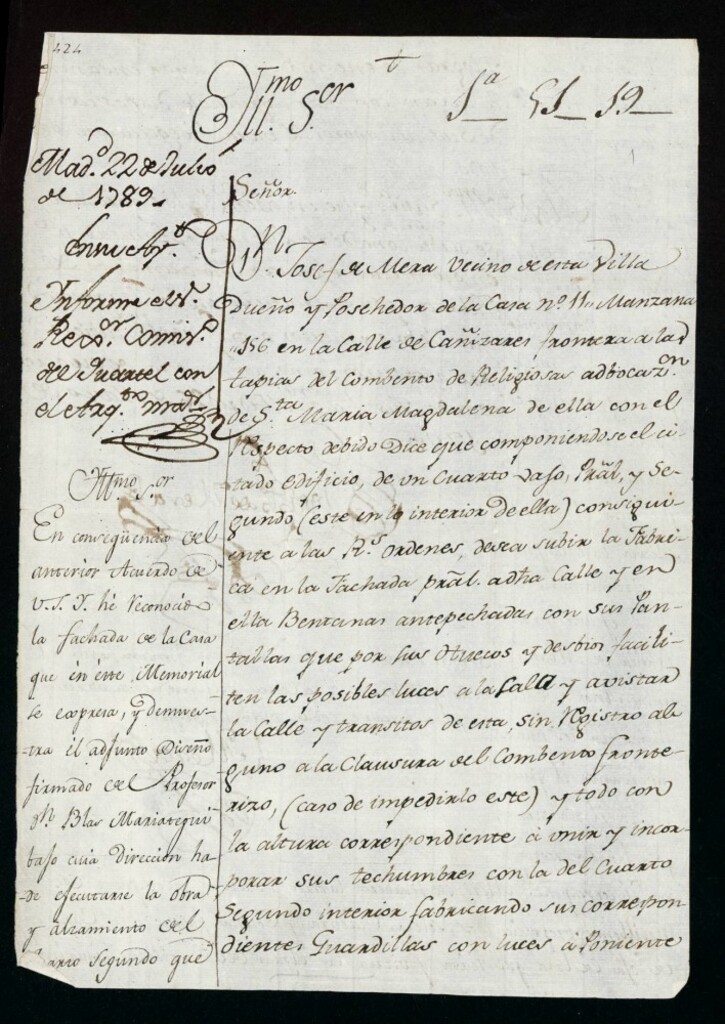 424
Yll.mo S.or
1a 51 19
Mad.d 22 de Julio
de 1789.
En su Ay.to
Informe el S.r
Rex.or Comis.o
del Quartel con
el Arq.to may.r
Yll.mo S.or
En conseqüencia del
anterior Acuerdo de
V.S.Y. hé reconocido
la fachada de la Casa
que en este Memorial
se expresa, y demues-
tra el adjunto Diseño
firmado del Profesor
Dn. Blas Mariategui
bajo cuia direccion ha
de efecutarse la obra
y alzamiento del
quarto segundo que
Señor
D.n Josef de Mera vecino de esta Villa
Dueño y Poschedor de la Casa nº. 11 Manzana
156 en la Calle de Cañizares frontera a las
tapias del Combento de Religiosas adbocaz.on
de S.ta Maria Magdalena de ella con el
Respecto debido Dice que componiendose el ci-
tado edificio, de un Cuarto vajo, Pral, y Se-
gundo (este en lo interior de ella) consigui-
ente a las R.s ordenes, desea subir la Fabri-
ca en la Fachada pral. a dha Calle y en
ella Bentanas antepechadas con sus Pan-
tallas que por sus Huecos y desbios facili-
ten las posibles luces a la Sala y avistar
la Calle y transitos de esta, sin Registro al-
guno a la Clausura del Combento fronte-
rizo, (caso de impedirlo este) y todo con
la altura correspondiente a unir y incor-
porar sus techumbres con la del Cuarto
Segundo interior fabricando sus correspon-
dientes Guardillas con luces a Poniente